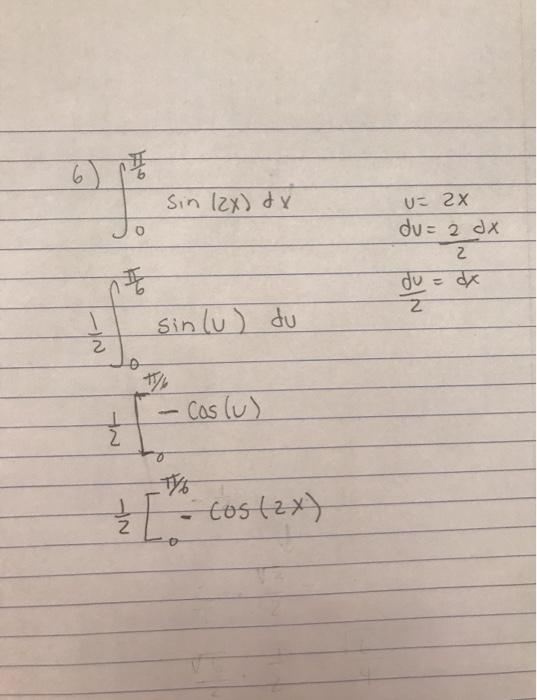 6) ∫₀^(π/6) sin (2x) dx
u = 2x
du = 2 dx
2
du/2 = dx
1/2 ∫₀^(π/6) sin(u) du
1/2 [₀^(π/6) - cos(u)
1/2 [₀^(π/6) - cos(2x)